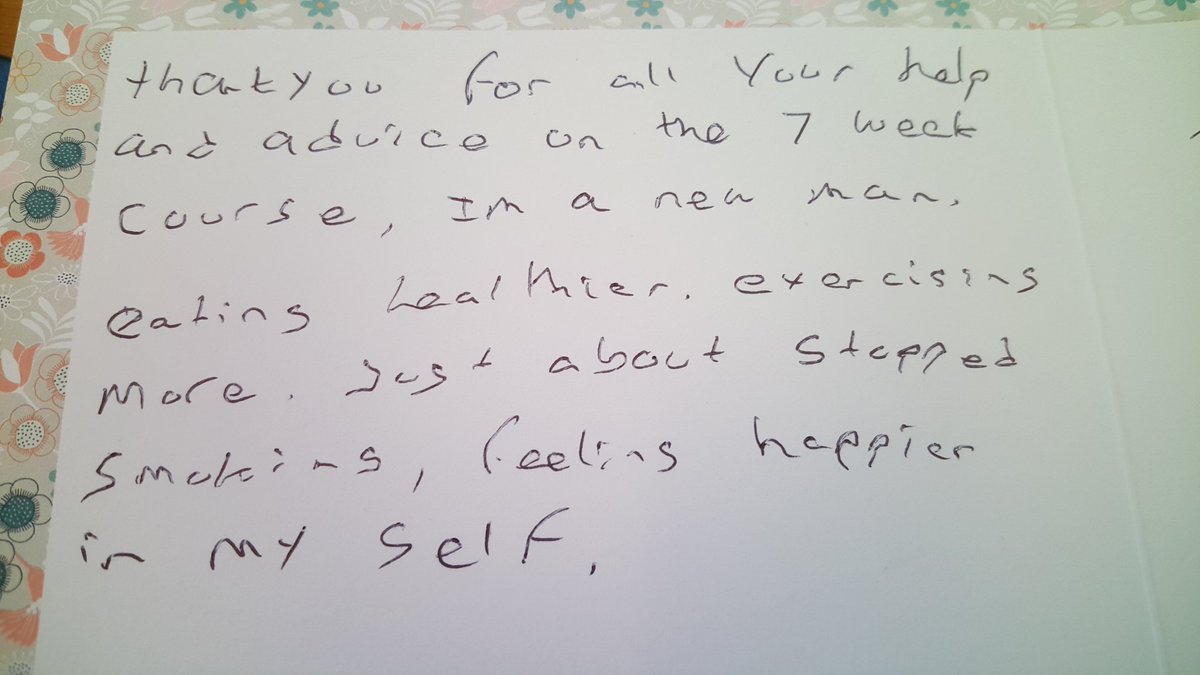 thankyou for all your help
and advice on the 7 week
course, Im a new man.
eating healthier. exercising
more. Just about stopped
smoking, feeling happier
in my self.